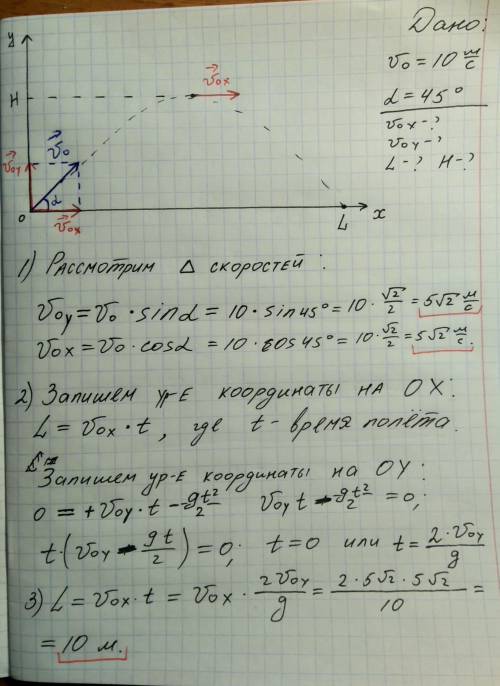 Дано:
v₀ = 10 м/с
α = 45°
v₀ₓ - ?
v₀y - ?
L - ? H - ?
y
H
v⃗₀ₓ
v⃗₀
v⃗₀y
α
0
v⃗₀ₓ
L
x
1) Рассмотрим Δ скоростей:
v₀y = v₀ · sinα = 10 · sin45° = 10 · √2/2 = 5√2 м/с
v₀ₓ = v₀ · cosα = 10 · cos45° = 10 · √2/2 = 5√2 м/с.
2) Запишем ур-е координаты на OX:
L = v₀ₓ · t, где t - время полёта.
Запишем ур-е координаты на OY:
0 = + v₀y · t - gt²/2 v₀y t - gt²/2 = 0;
t · (v₀y - gt/2) = 0; t = 0 или t = 2 · v₀y/g
3) L = v₀ₓ · t = v₀ₓ · 2v₀y/g = 2 · 5√2 · 5√2/10 =
= 10 м.